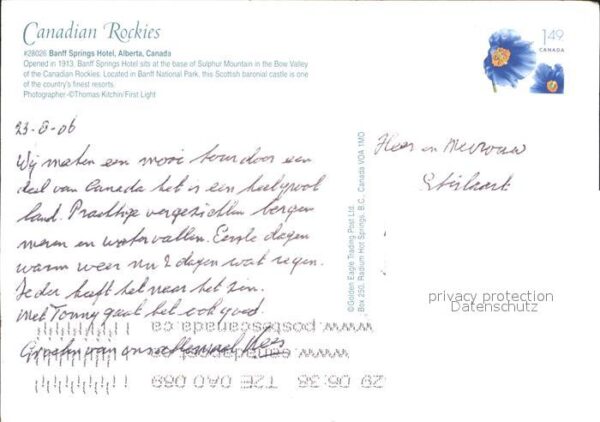 Canadian Rockies
#28026 Banff Springs Hotel, Alberta, Canada
Opened in 1913. Banff Springs Hotel sits at the base of Sulphur Mountain in the Bow Valley
of the Canadian Rockies. Located in Banff National Park, this Scottish baronial castle is one
of the country's finest resorts.
Photographer-©Thomas Kitchin/First Light
1.49
CANADA
23-6-06
Wij maken een mooi tour door een
deel van Canada het is een heel groot
land. Prachtige vergezichten bergen
meren en watervallen. Eerste dagen
warm weer nu 2 dagen wat regen.
Ieder heeft het naar het zin.
met Tonny gaat het ook goed.
Groeten van ons allemaal Kees
Heer en Mevrouw
©Golden Eagle Trading Post Ltd.
Box 250, Radium Hot Springs, B.C., Canada V0A 1M0
privacy protection
Datenschutz
www.postescanada.ca
www.canadapost.ca
29 06 38 T2E 0A0 089